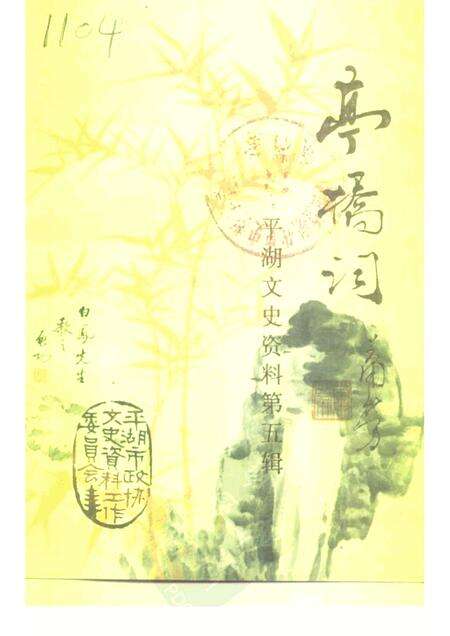 1104
亭橋词
平湖文史资料第五辑
先生
平湖市政协
文史資料工作
委員会章